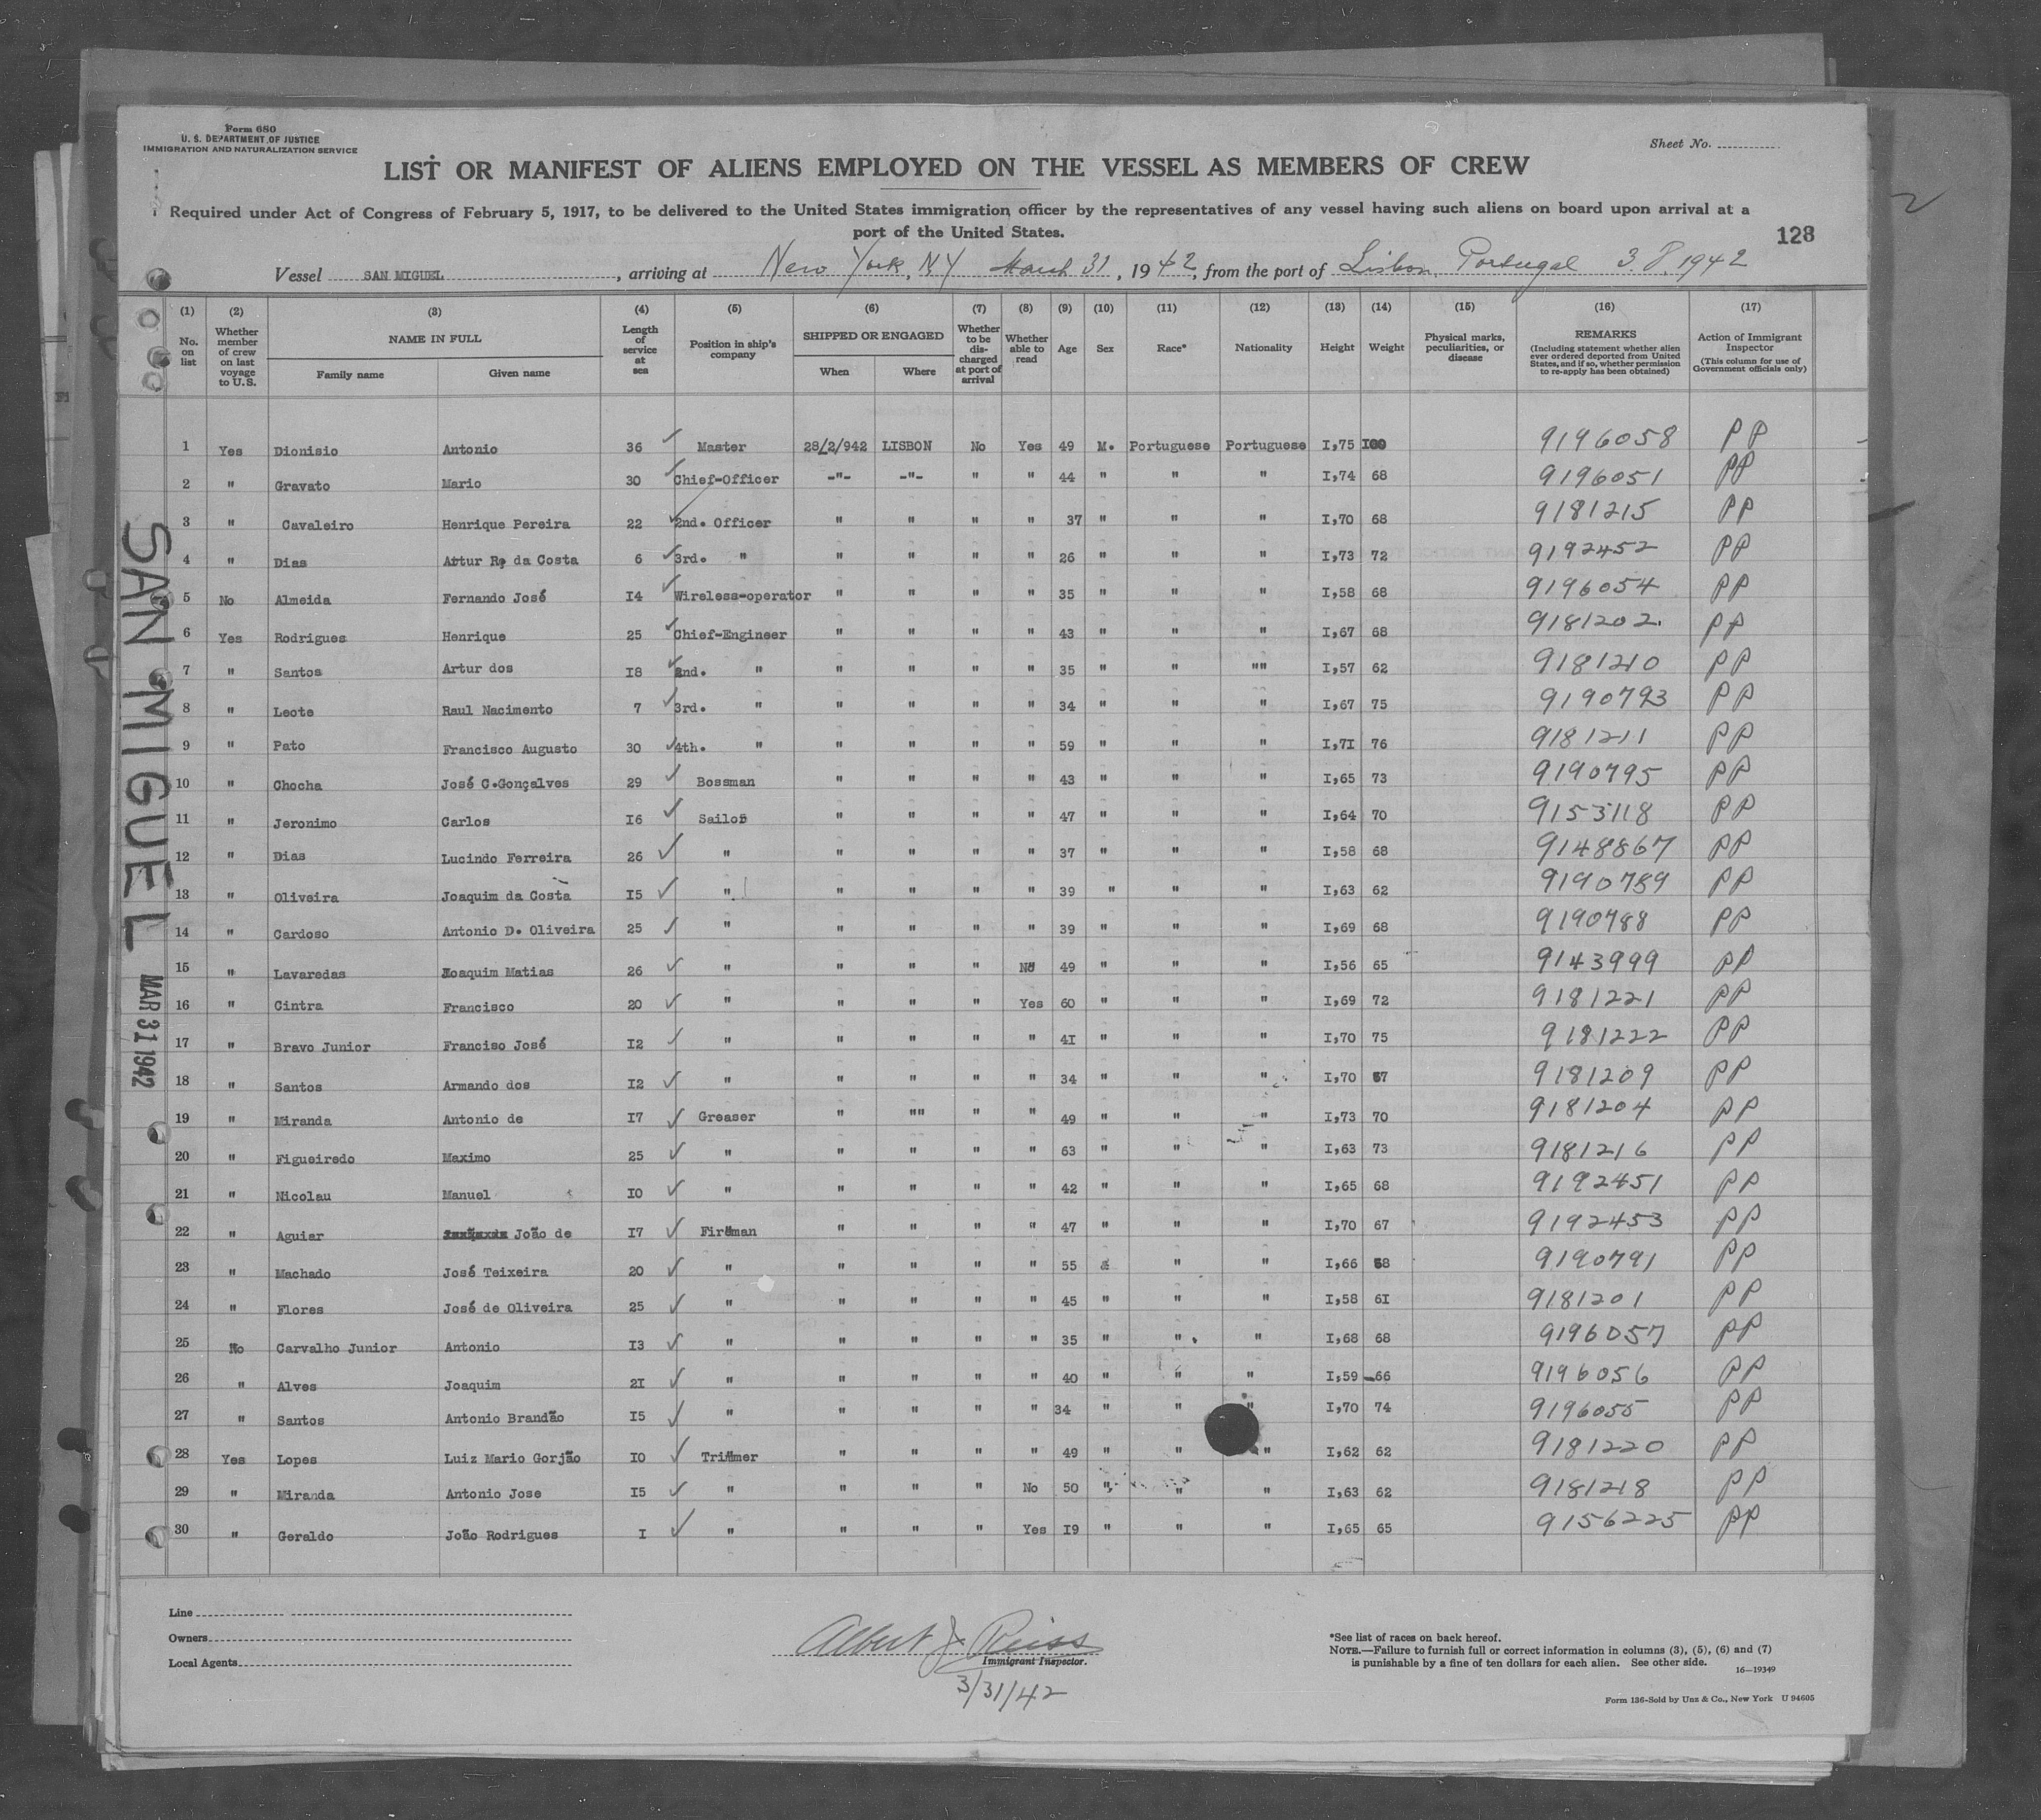 Form 680
U. S. DEPARTMENT OF JUSTICE
IMMIGRATION AND NATURALIZATION SERVICE
Sheet No.
LIST OR MANIFEST OF ALIENS EMPLOYED ON THE VESSEL AS MEMBERS OF CREW
Required under Act of Congress of February 5, 1917, to be delivered to the United States immigration officer by the representatives of any vessel having such aliens on board upon arrival at a
port of the United States.
128
Vessel SAN MIGUEL, arriving at New York, NY March 31, 1942, from the port of Lisbon, Portugal 3.8.1942
(1) No. on list (2) Whether member of crew on last voyage to U.S. (3) NAME IN FULL Family name Given name (4) Length of service at sea (5) Position in ship's company (6) SHIPPED OR ENGAGED When Where (7) Whether to be discharged at port of arrival (8) Whether able to read (9) Age (10) Sex (11) Race* (12) Nationality (13) Height (14) Weight (15) Physical marks, peculiarities, or disease (16) REMARKS (Including statement whether alien ever ordered deported from United States, and if so, whether permission to re-apply has been obtained) (17) Action of Immigrant Inspector (This column for use of Government officials only)
1 Yes Dionisio Antonio 36 Master 28/2/942 LISBON No Yes 49 M. Portuguese Portuguese I,75 I00 9196058 PP
2 " Gravato Mario 30 Chief-Officer -"- -"- " " 44 " " " I,74 68 9196051 PP
3 " Cavaleiro Henrique Pereira 22 2nd. Officer " " " " 37 " " " I,70 68 9181215 PP
4 " Dias Artur R. da Costa 6 3rd. " " " " " 26 " " " I,73 72 9192452 PP
5 No Almeida Fernando José I4 Wireless-operator " " " " 35 " " " I,58 68 9196054 PP
6 Yes Rodrigues Henrique 25 Chief-Engineer " " " " 43 " " " I,67 68 9181202. PP
7 " Santos Artur dos I8 2nd. " " " " " 35 " " "" I,57 62 9181210 PP
8 " Leote Raul Nacimento 7 3rd. " " " " " 34 " " " I,67 75 9190793 PP
9 " Pato Francisco Augusto 30 4th. " " " " " 59 " " " I,7I 76 9181211 PP
10 " Chocha José C.Gonçalves 29 Bossman " " " " 43 " " " I,65 73 9190795 PP
11 " Jeronimo Carlos I6 Sailor " " " " 47 " " " I,64 70 9153118 PP
12 " Dias Lucindo Ferreira 26 " " " " " 37 " " " I,58 68 9148867 PP
13 " Oliveira Joaquim da Costa I5 " " " " " 39 " " " I,63 62 9190789 PP
14 " Cardoso Antonio D. Oliveira 25 " " " " " 39 " " " I,69 68 9190788 PP
15 " Lavaredas Joaquim Matias 26 " " " " No 49 " " " I,56 65 9143999 PP
16 " Cintra Francisco 20 " " " " Yes 60 " " " I,69 72 9181221 PP
17 " Bravo Junior Franciso José I2 " " " " " 4I " " " I,70 75 9181222 PP
18 " Santos Armando dos I2 " " " " " 34 " " " I,70 67 9181209 PP
19 " Miranda Antonio de I7 Greaser " "" " " 49 " " " I,73 70 9181204 PP
20 " Figueiredo Maximo 25 " " " " " 63 " " " I,63 73 9181216 PP
21 " Nicolau Manuel I0 " " " " " 42 " " " I,65 68 9192451 PP
22 " Aguiar João de I7 Fireman " " " " 47 " " " I,70 67 9192453 PP
23 " Machado José Teixeira 20 " " " " " 55 " " I,66 68 9190791 PP
24 " Flores José de Oliveira 25 " " " " " 45 " " " I,58 6I 9181201 PP
25 No Carvalho Junior Antonio I3 " " " " " 35 " " " I,68 68 9196057 PP
26 " Alves Joaquim 2I " " " " " 40 " " " I,59 66 9196056 PP
27 " Santos Antonio Brandão I5 " " " " " 34 " " " I,70 74 9196055 PP
28 Yes Lopes Luiz Mario Gorjão I0 Trimmer " " " " 49 " " " I,62 62 9181220 PP
29 " Miranda Antonio Jose I5 " " " " No 50 " " " I,63 62 9181218 PP
30 " Geraldo João Rodrigues I " " " " Yes I9 " " " I,65 65 9156225 PP
SAN MIGUEL
MAR 31 1942
Line
Owners
Local Agents
Albert J. Reiss
Immigrant Inspector.
3/31/42
*See list of races on back hereof.
NOTE.—Failure to furnish full or correct information in columns (3), (5), (6) and (7)
is punishable by a fine of ten dollars for each alien. See other side.
16—19349
Form 136-Sold by Unz & Co., New York U 94605
2